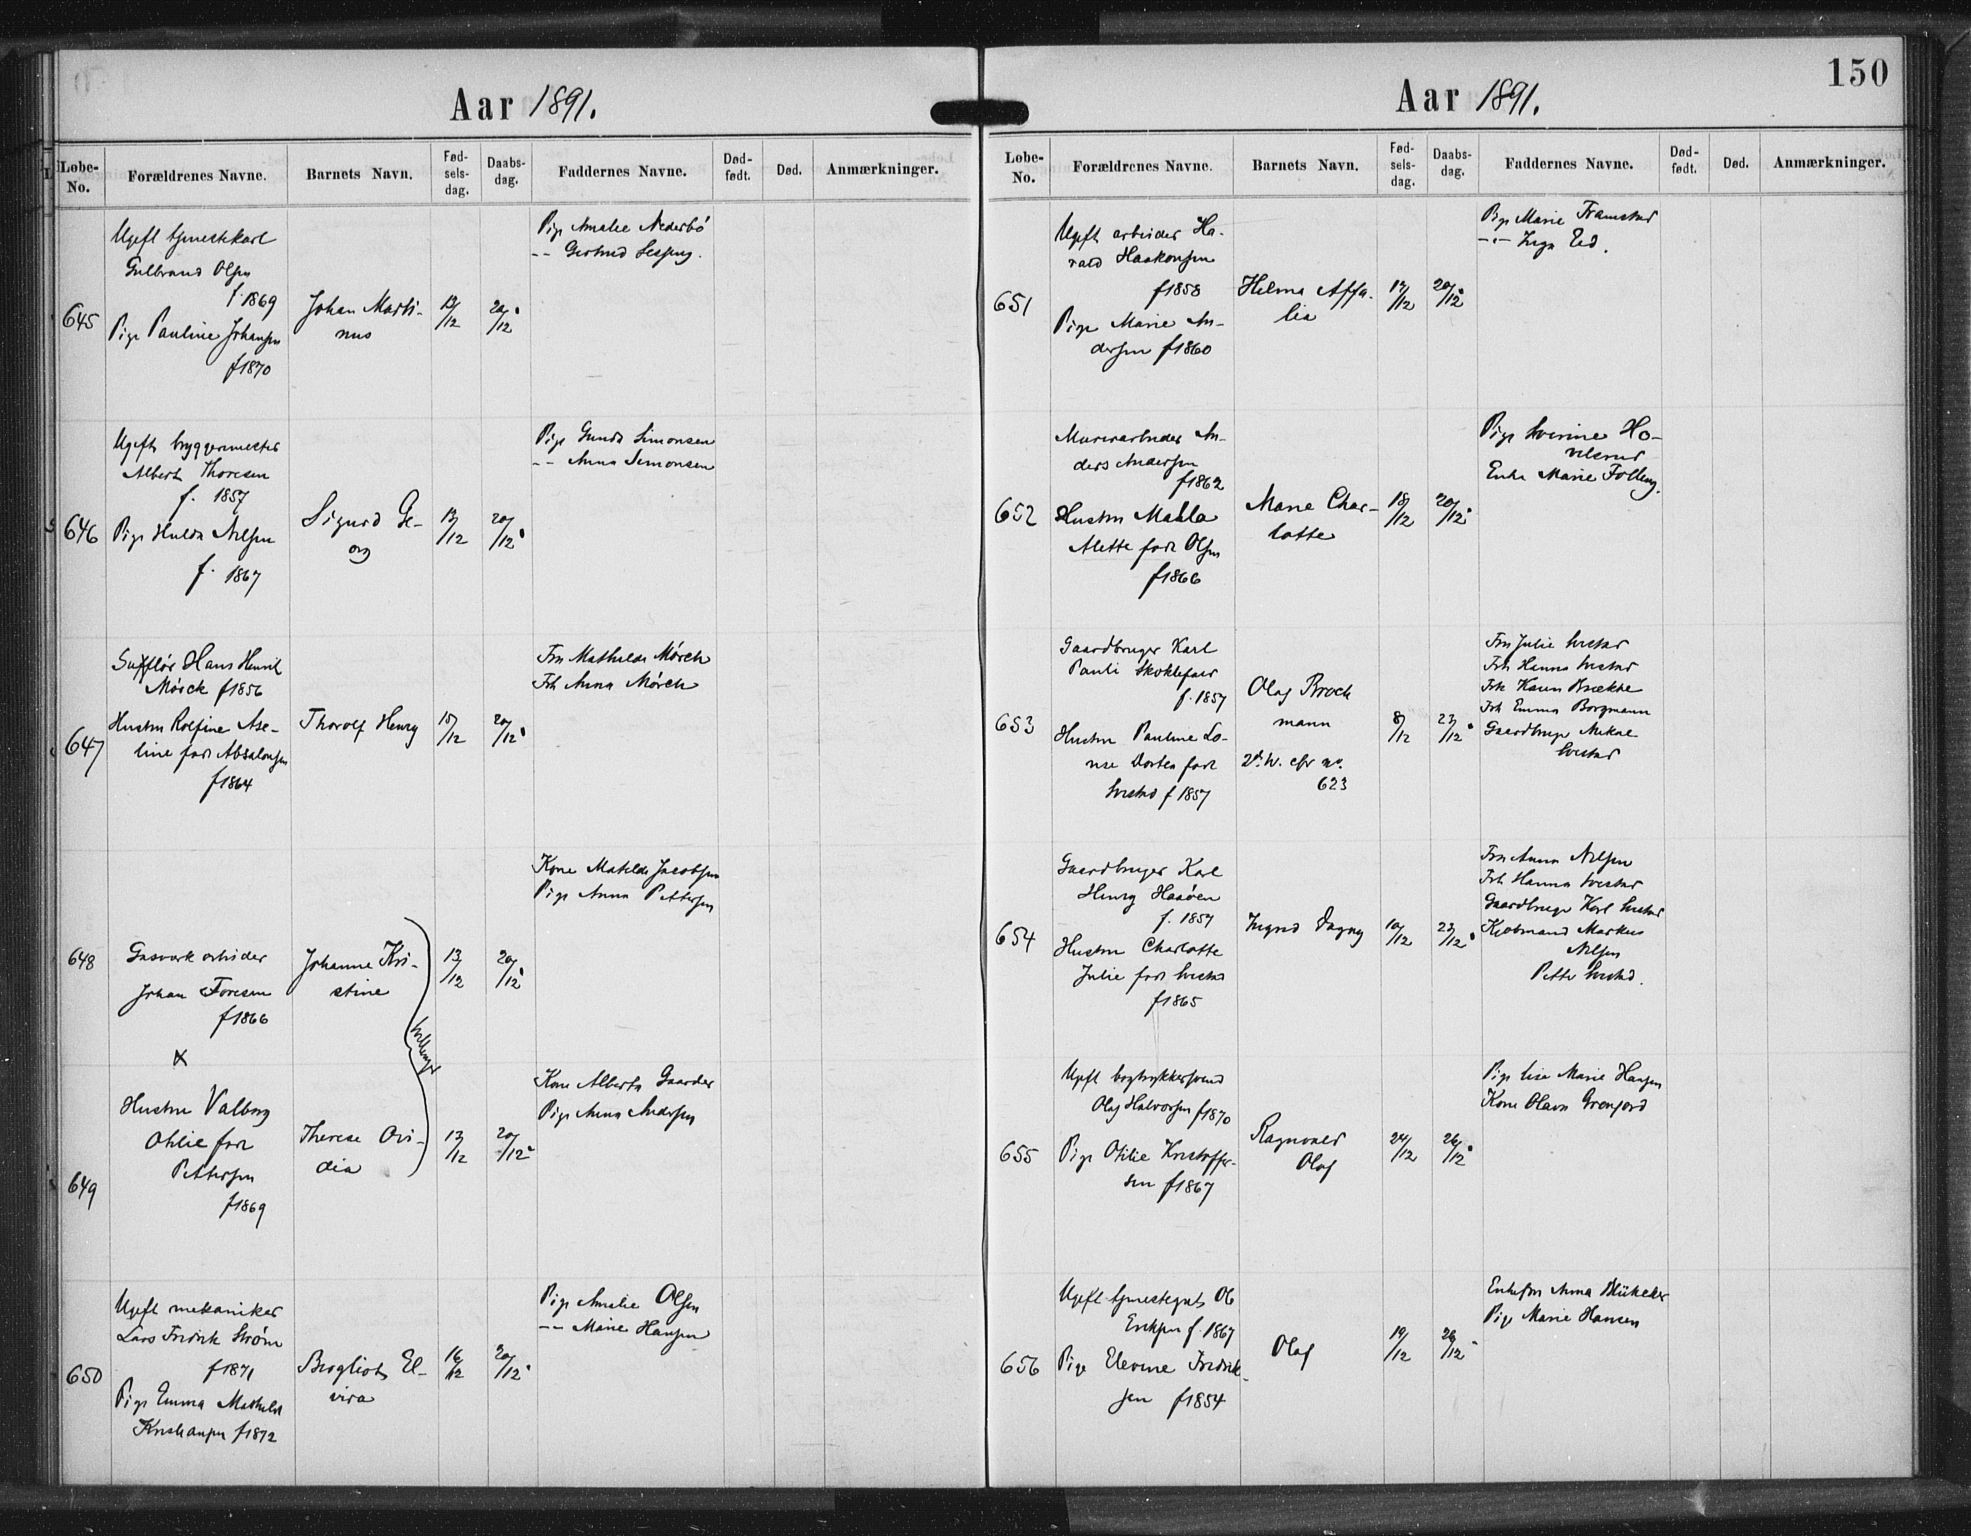 Aar 1891.
Løbe-No.
Forældrenes Navne.
Barnets Navn.
Fød-sels-dag.
Daabs-dag.
Faddernes Navne.
Død-født.
Død.
Anmærkninger.
645
Ugift tjenestekarl
Gulbrand Olsen
f. 1869
Pige Pauline Johansen
f 1870
Johan Marti-
nus
12/12
20/12
Pige Amalie Nederbö
-- Gertrud
646
Ugift bryggermester
Albert Thoresen
f. 1857
Pige Hulda Nilsen
f. 1867
Sigurd Ge-
org
13/12
20/12
Pige Gunda Simonsen
-- Anna Simonsen
647
Sufflør Hans Henrik
Mörck f 1856
Hustru Rolfine Ase-
line født Absalonsen
f 1864
Thorolf Henry
15/12
20/12
Fru Mathilde Mörch
Frk Anna Mörch
648
Gasverkarbeider
Johan Foresen
f 1866
x
Johanne Kri-
stine
13/12
20/12
Kone Matilde Jacobsen
Pige Anna Pettersen
tvillinger
649
Hustru Valborg
Otilie født
Pettersen
f 1869
Therese Ovi-
dia
13/12
20/12
Kone Alberta Gaarder
Pige Anna Andersen
650
Ugift mekaniker
Lars Fredrik Ström
f 1871
Pige Emma Mathilde
Kristiansen f 1872
Bergliot El-
vira
16/12
20/12
Pige Amalie Olsen
-- Marie Hansen
150
Aar 1891.
Løbe-No.
Forældrenes Navne.
Barnets Navn.
Fød-sels-dag.
Daabs-dag.
Faddernes Navne.
Død-født.
Død.
Anmærkninger.
651
Ugift arbeider Ha-
rald Haakonsen
f 1858
Pige Marie An-
dersen f 1860
Helma Affa-
lia
12/12
20/12
Pige Marie Framstad
-"- Inga Eid.
652
Murerarbeider An-
ders Andersen
f 1862
Hustru Malla
Alette født Olsen
f 1866
Marie Char-
lotte
18/12
20/12
Pige Severine Ho-
velsrud
Enke Marie Folleng.
653
Gaardbruger Karl
Pauli Skoklefald
f. 1857
Hustru Pauline Lo-
vise Dortea født
f 1857
Olaf Brock
mann
2d. W. cfr no.
623
8/12
23/12
Fru Julie
Frk Hanna
Frk Karen Brække
Frk Emma Borgmann
Gaardbruger
654
Gaardbruger Karl
Henry Haaöen
f. 1857
Hustru Charlotte
Julie født
f 1865
Ingrid Dagny
10/12
23/12
Fru Anna Nilsen
Frk Hanna
Gaardbruger Karl
Kjøbmand Markus
Nilsen
Petter
655
Ugift bogtrykkersvend
Olaf Halvorsen f 1870
Pige Otilie Kristoffer-
sen f 1867
Ragnvald
Olaf
24/12
26/12
Pige Lise Marie Hansen
Kone Olava Grenjord
656
Ugift tjenestegut Ole
Eriksen f. 1867
Pige Elevine Fredrik-
sen f 1854
Olaf
19/12
26/12
Enkefru Anna
Pige Marie Hansen